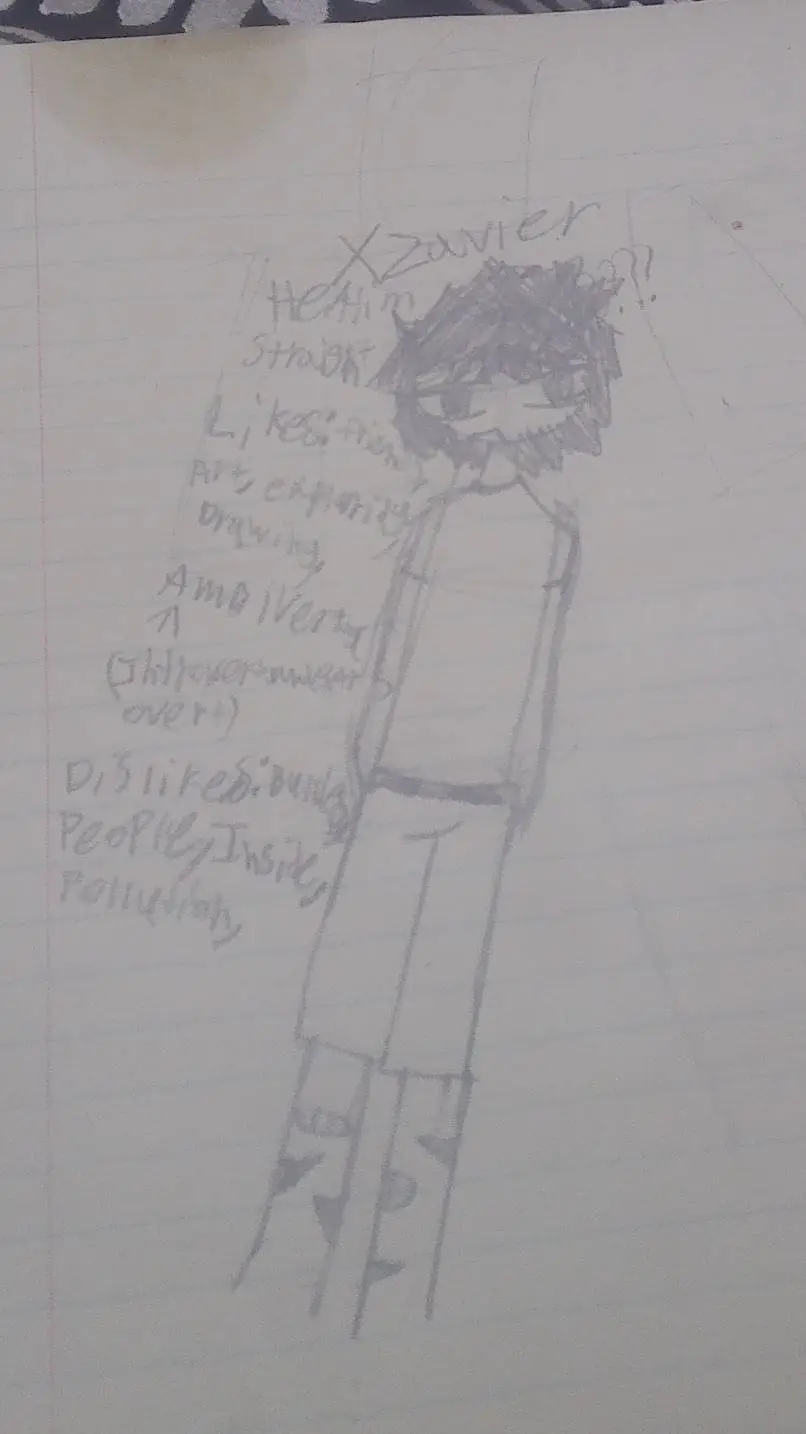 Xzavier
??
He/Him
Straight
Likes:
Art, exploring
Drawing,
Ambivert,
overt)
Dislikes:
People, Inside,
Pollution,